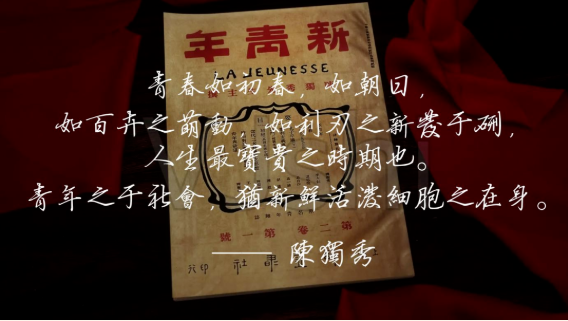 新青年
LA JEUNESSE
青春如初春，如朝日，
如百卉之萌動，如利刃之新發于硎，
人生最寶貴之時期也。
青年之于社會，猶新鮮活潑細胞之在身。
第二卷第一號
—— 陳獨秀